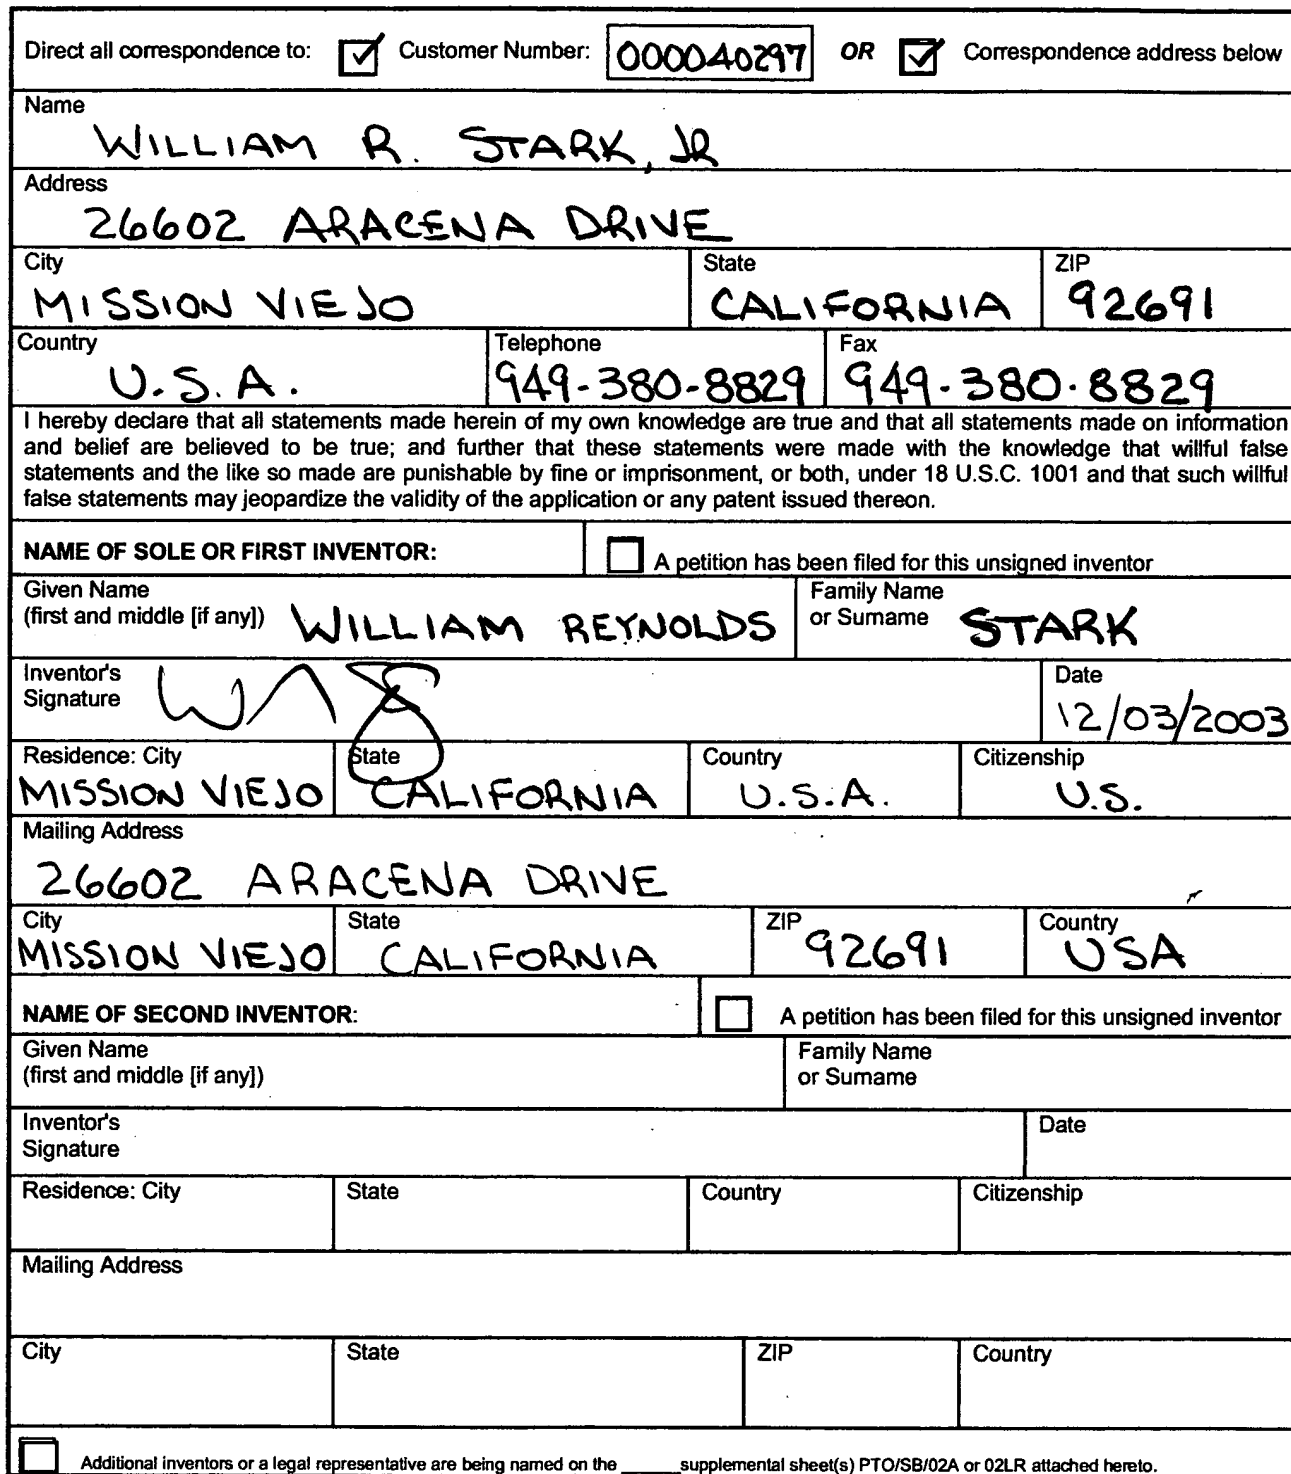 Direct all correspondence to: Customer Number: 000040297 OR Correspondence address below
Name
WILLIAM R. STARK, JR
Address
26602 ARACENA DRIVE
City State ZIP
MISSION VIEJO CALIFORNIA 92691
Country Telephone Fax
U.S.A. 949-380-8829 949-380-8829
I hereby declare that all statements made herein of my own knowledge are true and that all statements made on information
and belief are believed to be true; and further that these statements were made with the knowledge that willful false
statements and the like so made are punishable by fine or imprisonment, or both, under 18 U.S.C. 1001 and that such willful
false statements may jeopardize the validity of the application or any patent issued thereon.
NAME OF SOLE OR FIRST INVENTOR: A petition has been filed for this unsigned inventor
Given Name Family Name
(first and middle [if any]) WILLIAM REYNOLDS or Surname STARK
Inventor's Date
Signature 12/03/2003
Residence: City State Country Citizenship
MISSION VIEJO CALIFORNIA U.S.A. U.S.
Mailing Address
26602 ARACENA DRIVE
City State ZIP Country
MISSION VIEJO CALIFORNIA 92691 USA
NAME OF SECOND INVENTOR: A petition has been filed for this unsigned inventor
Given Name Family Name
(first and middle [if any]) or Surname
Inventor's Date
Signature
Residence: City State Country Citizenship
Mailing Address
City State ZIP Country
Additional inventors or a legal representative are being named on the _____ supplemental sheet(s) PTO/SB/02A or 02LR attached hereto.